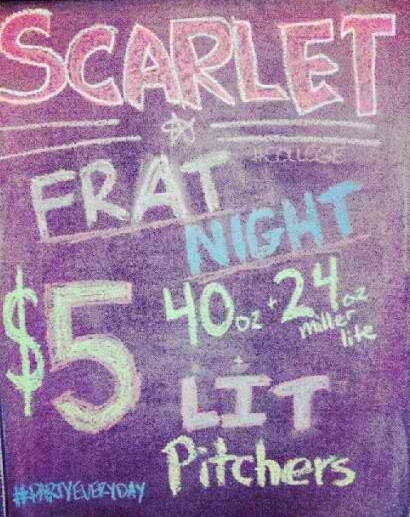 SCARLET
#COLLEGE
FRAT
NIGHT
$5 40oz + 24oz
miller
lite
+
LIT
Pitchers
#PARTYEVERYDAY